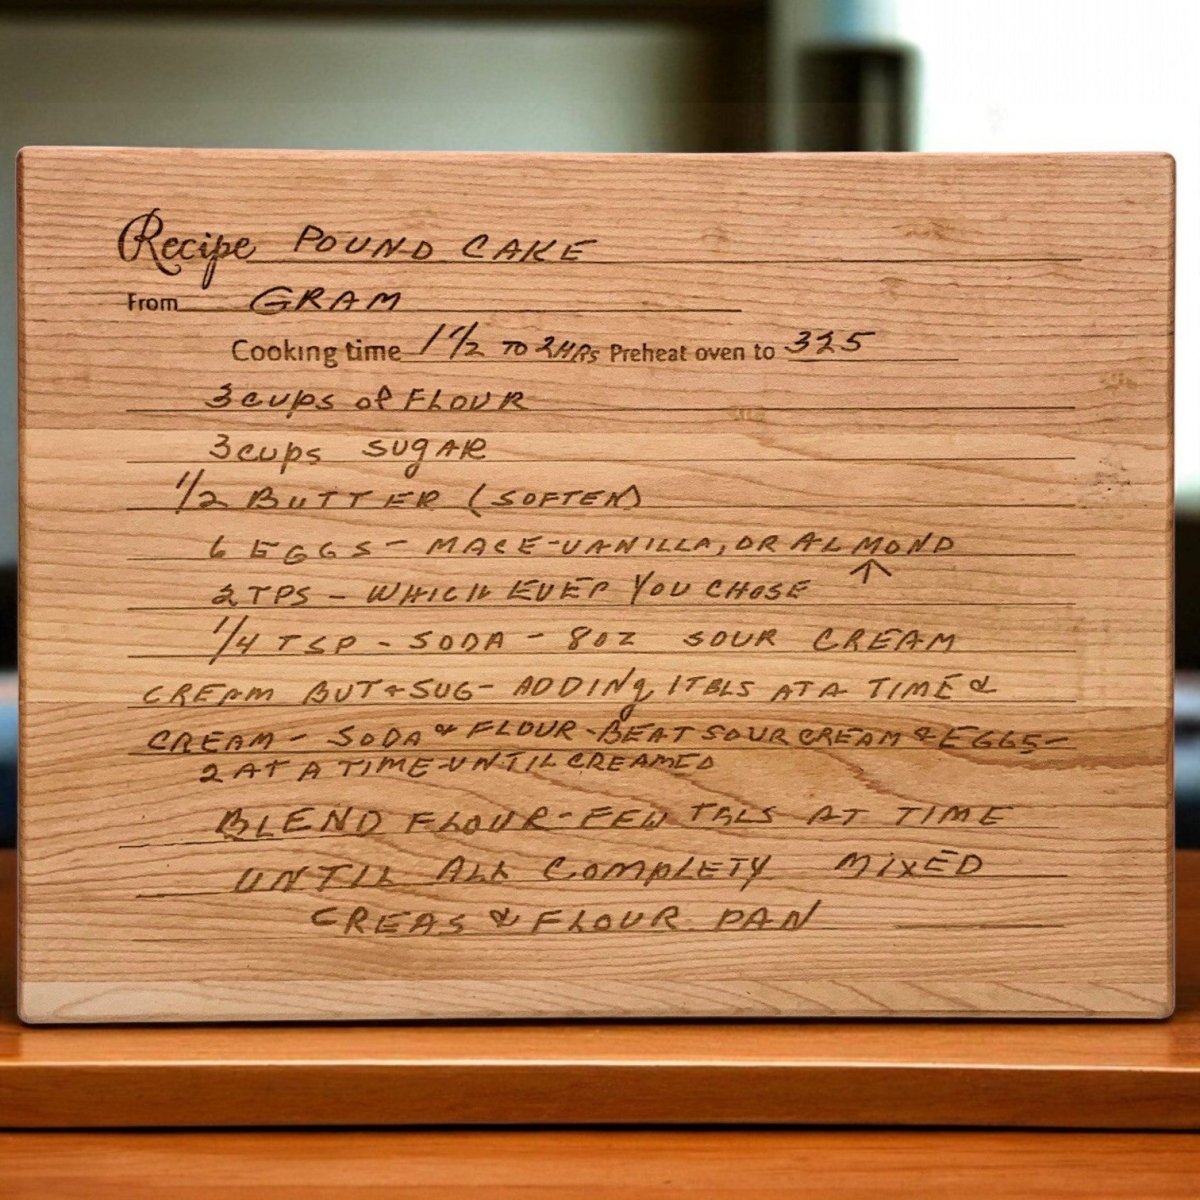 Recipe POUND CAKE
From GRAM
Cooking time 1 1/2 TO 2HRs Preheat oven to 325
3 cups of FLOUR
3 cups SUgAR
1/2 BUTTER (SOFTEN)
6 EGGS - MACE-VANILLA, OR ALMOND
↑
2 TPS - WHICH EVER YOU CHOSE
1/4 TSP - SODA - 8OZ SOUR CREAM
CREAM BUT & SUG - ADDINg 1TBLS AT A TIME &
CREAM - SODA & FLOUR - BEAT SOUR CREAM & EGGS -
2 AT A TIME - UNTIL CREAMED
BLEND FLOUR - FEW TBLS AT TIME
UNTIL ALL COMPLETY MIXED
CREAS & FLOUR PAN